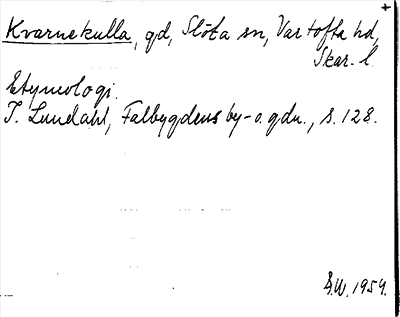 +
Kvarnekulla, gd, Slöta sn, Vartofta hd,
Skar. l.
Etymologi.
I. Lundahl, Falbygdens by- o. gdn., s. 128.
B.W. 1954.